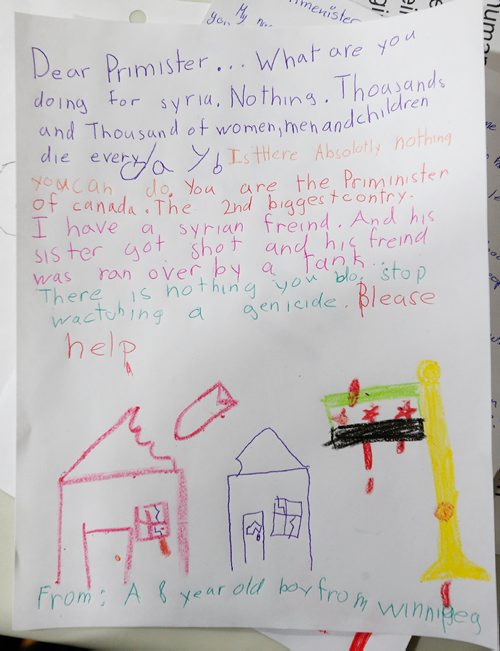 Dear Primister... What are you
doing for syria. Nothing. Thousands
and Thousand of women, men and children
die every day. Is there Absolutly nothing
you can do. You are the Priminister
of canada. The 2nd biggest contry.
I have a syrian freind. And his
sister got shot and his freind
was ran over by a tank.
There is nothing you do. stop
wactching a genicide. Please
help
From: A 8 year old boy from winnipeg